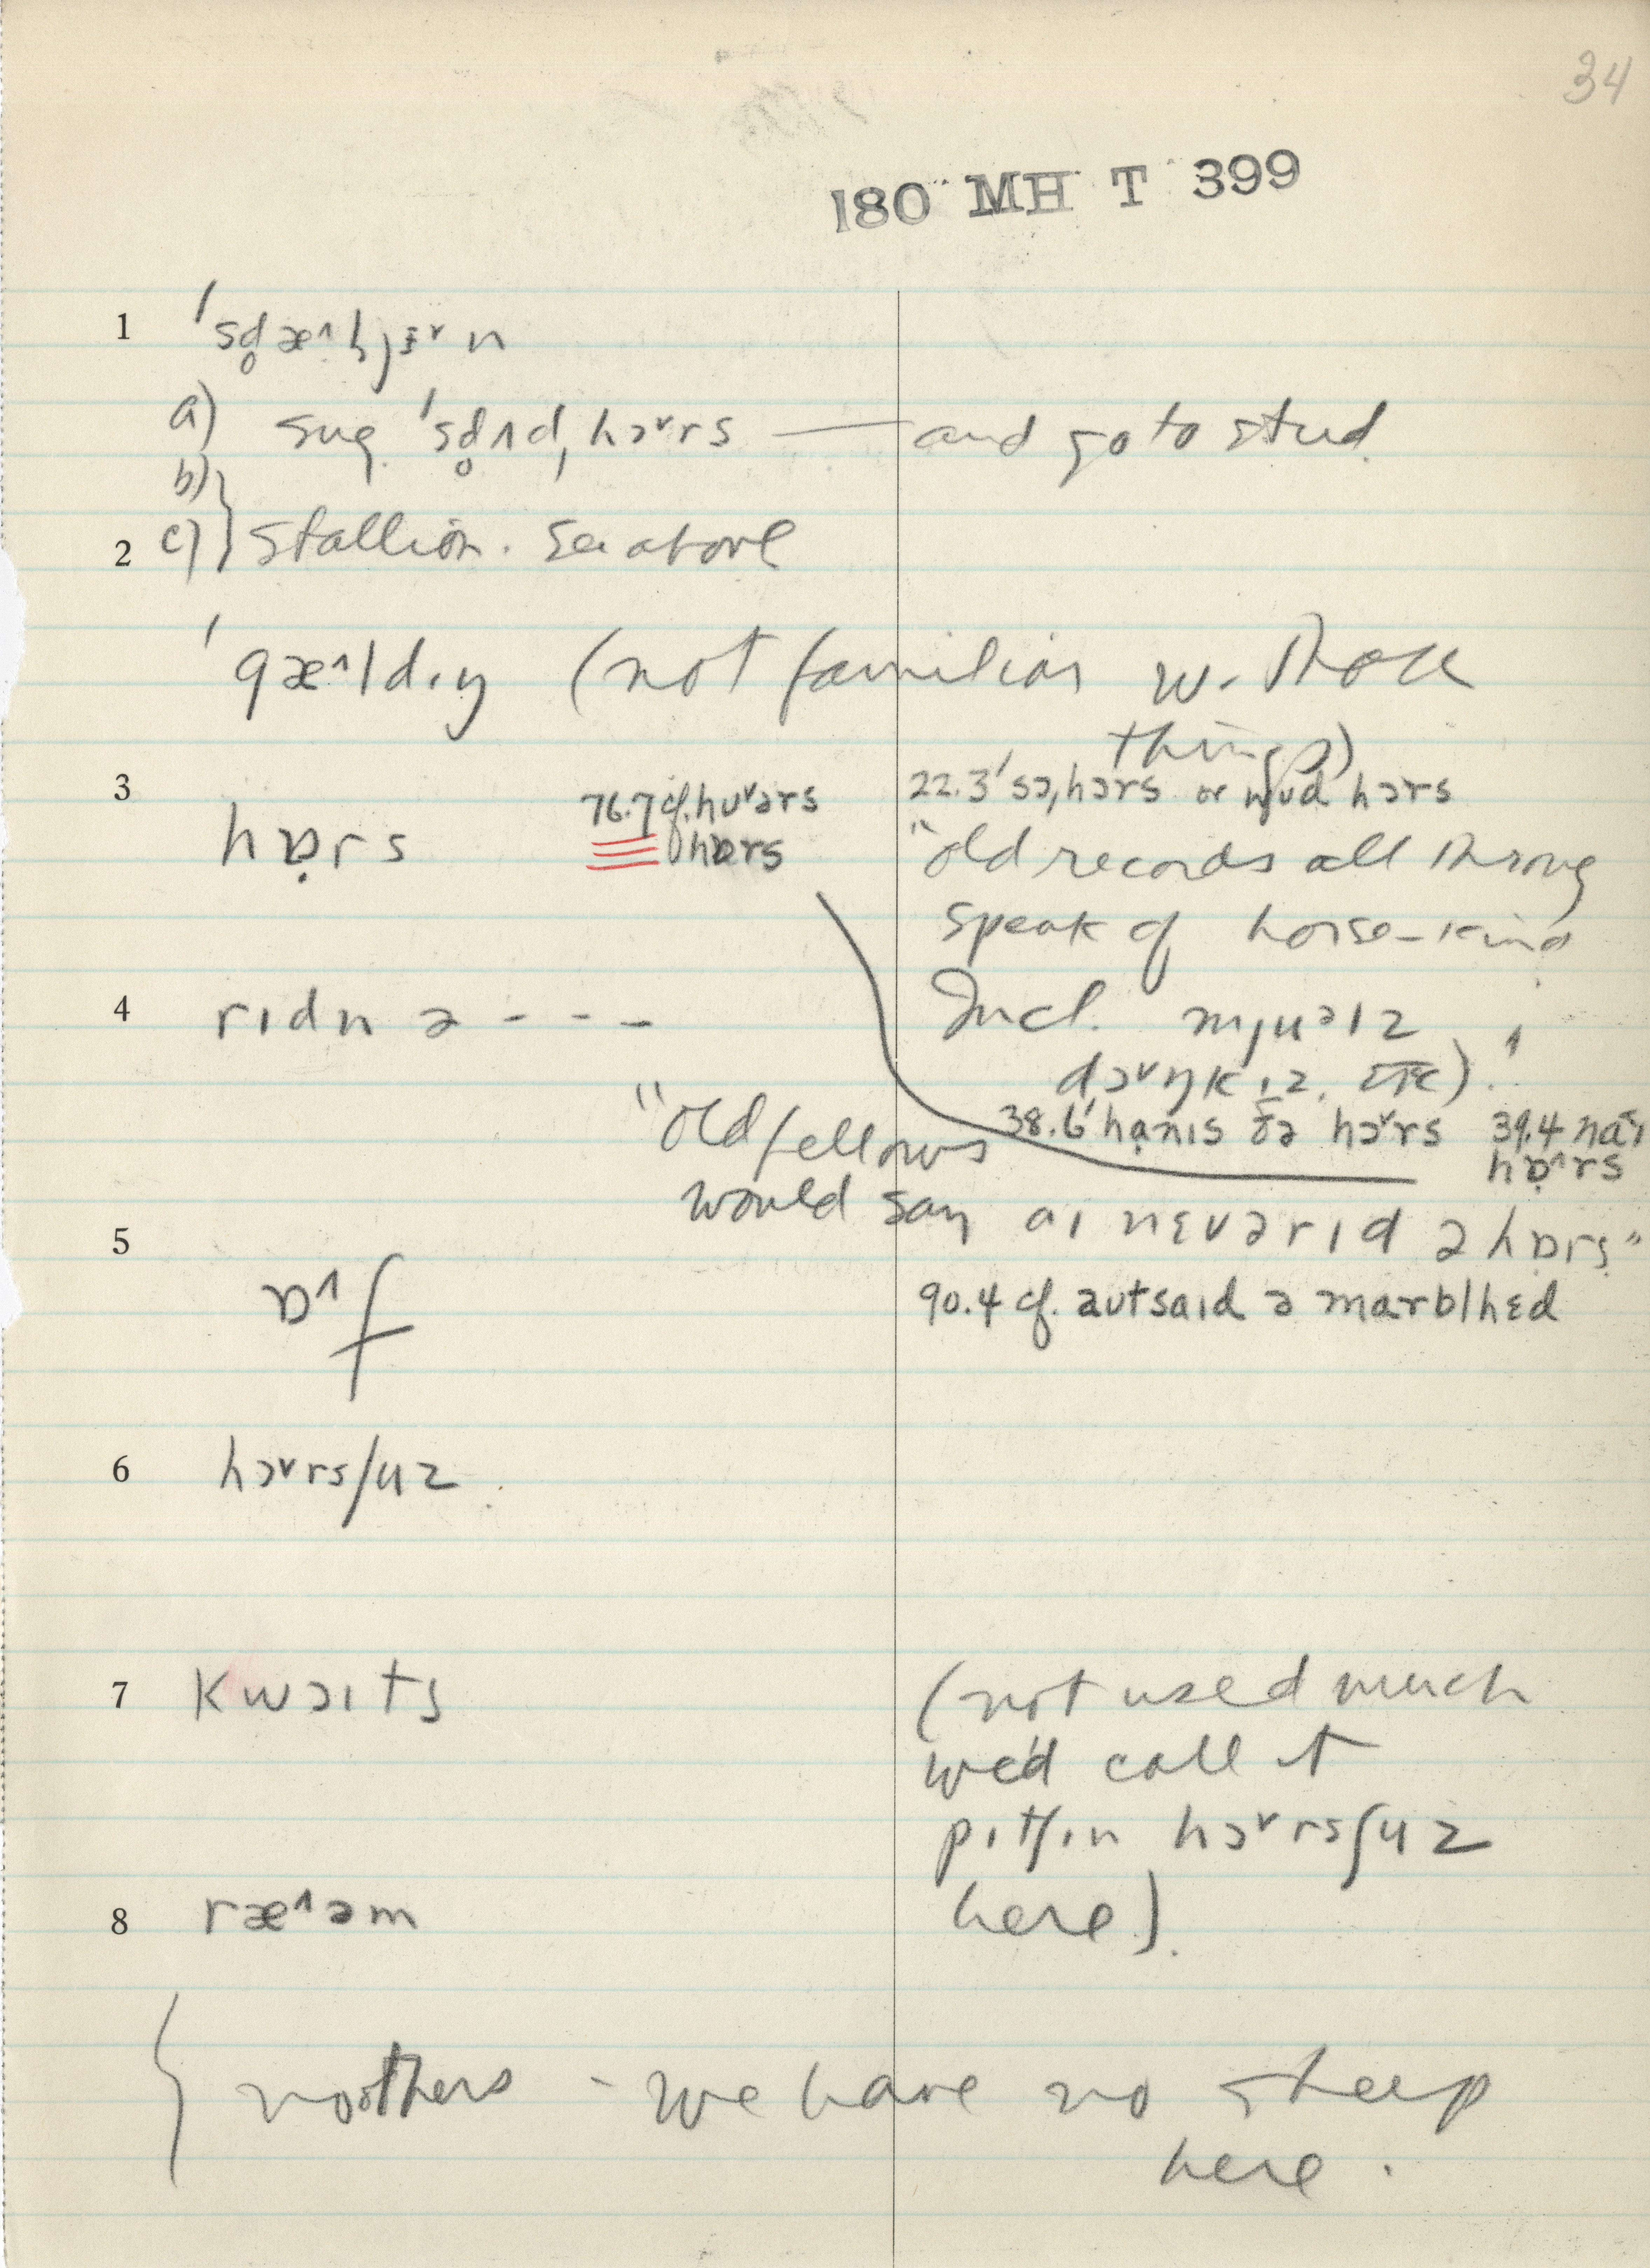 34
180 MH T 399
1 ˈsd̥æ˄l̥jɪ˅n
a) sug. ˈsd̥ʌdˌhɔ˅rs — and go to stud.
b)
2 c) } stallion. See above
(not familiar w. those
things)
3 hɒ̣rs
76.7 cf. hʊ˅ərs
hɒrs
22.3 ˈsɔˌhɔrs or wud hɔrs
"old records all throug
speak of horse-kind
4 rɪdn ə - - -
Incl. mjuəlz
dɔ˅ŋkɪz, etc)."
"old fellows
38.6 ˈhạnɪs ðə hɔ˅rs 39.4
hɒ̣˄rs
would say aɪ nɛvə rɪd ə hɒrs"
5 ɒ˄f
90.4 cf. autsaɪd ə marblhɛd
6 hɔ˅rsʃuz
7 kwɔɪts
(not used much
we'd call it
pɪtʃɪn hɔ˅rsʃuz
here).
8 ræ˄əm
{ no others - we have no sheep
here.